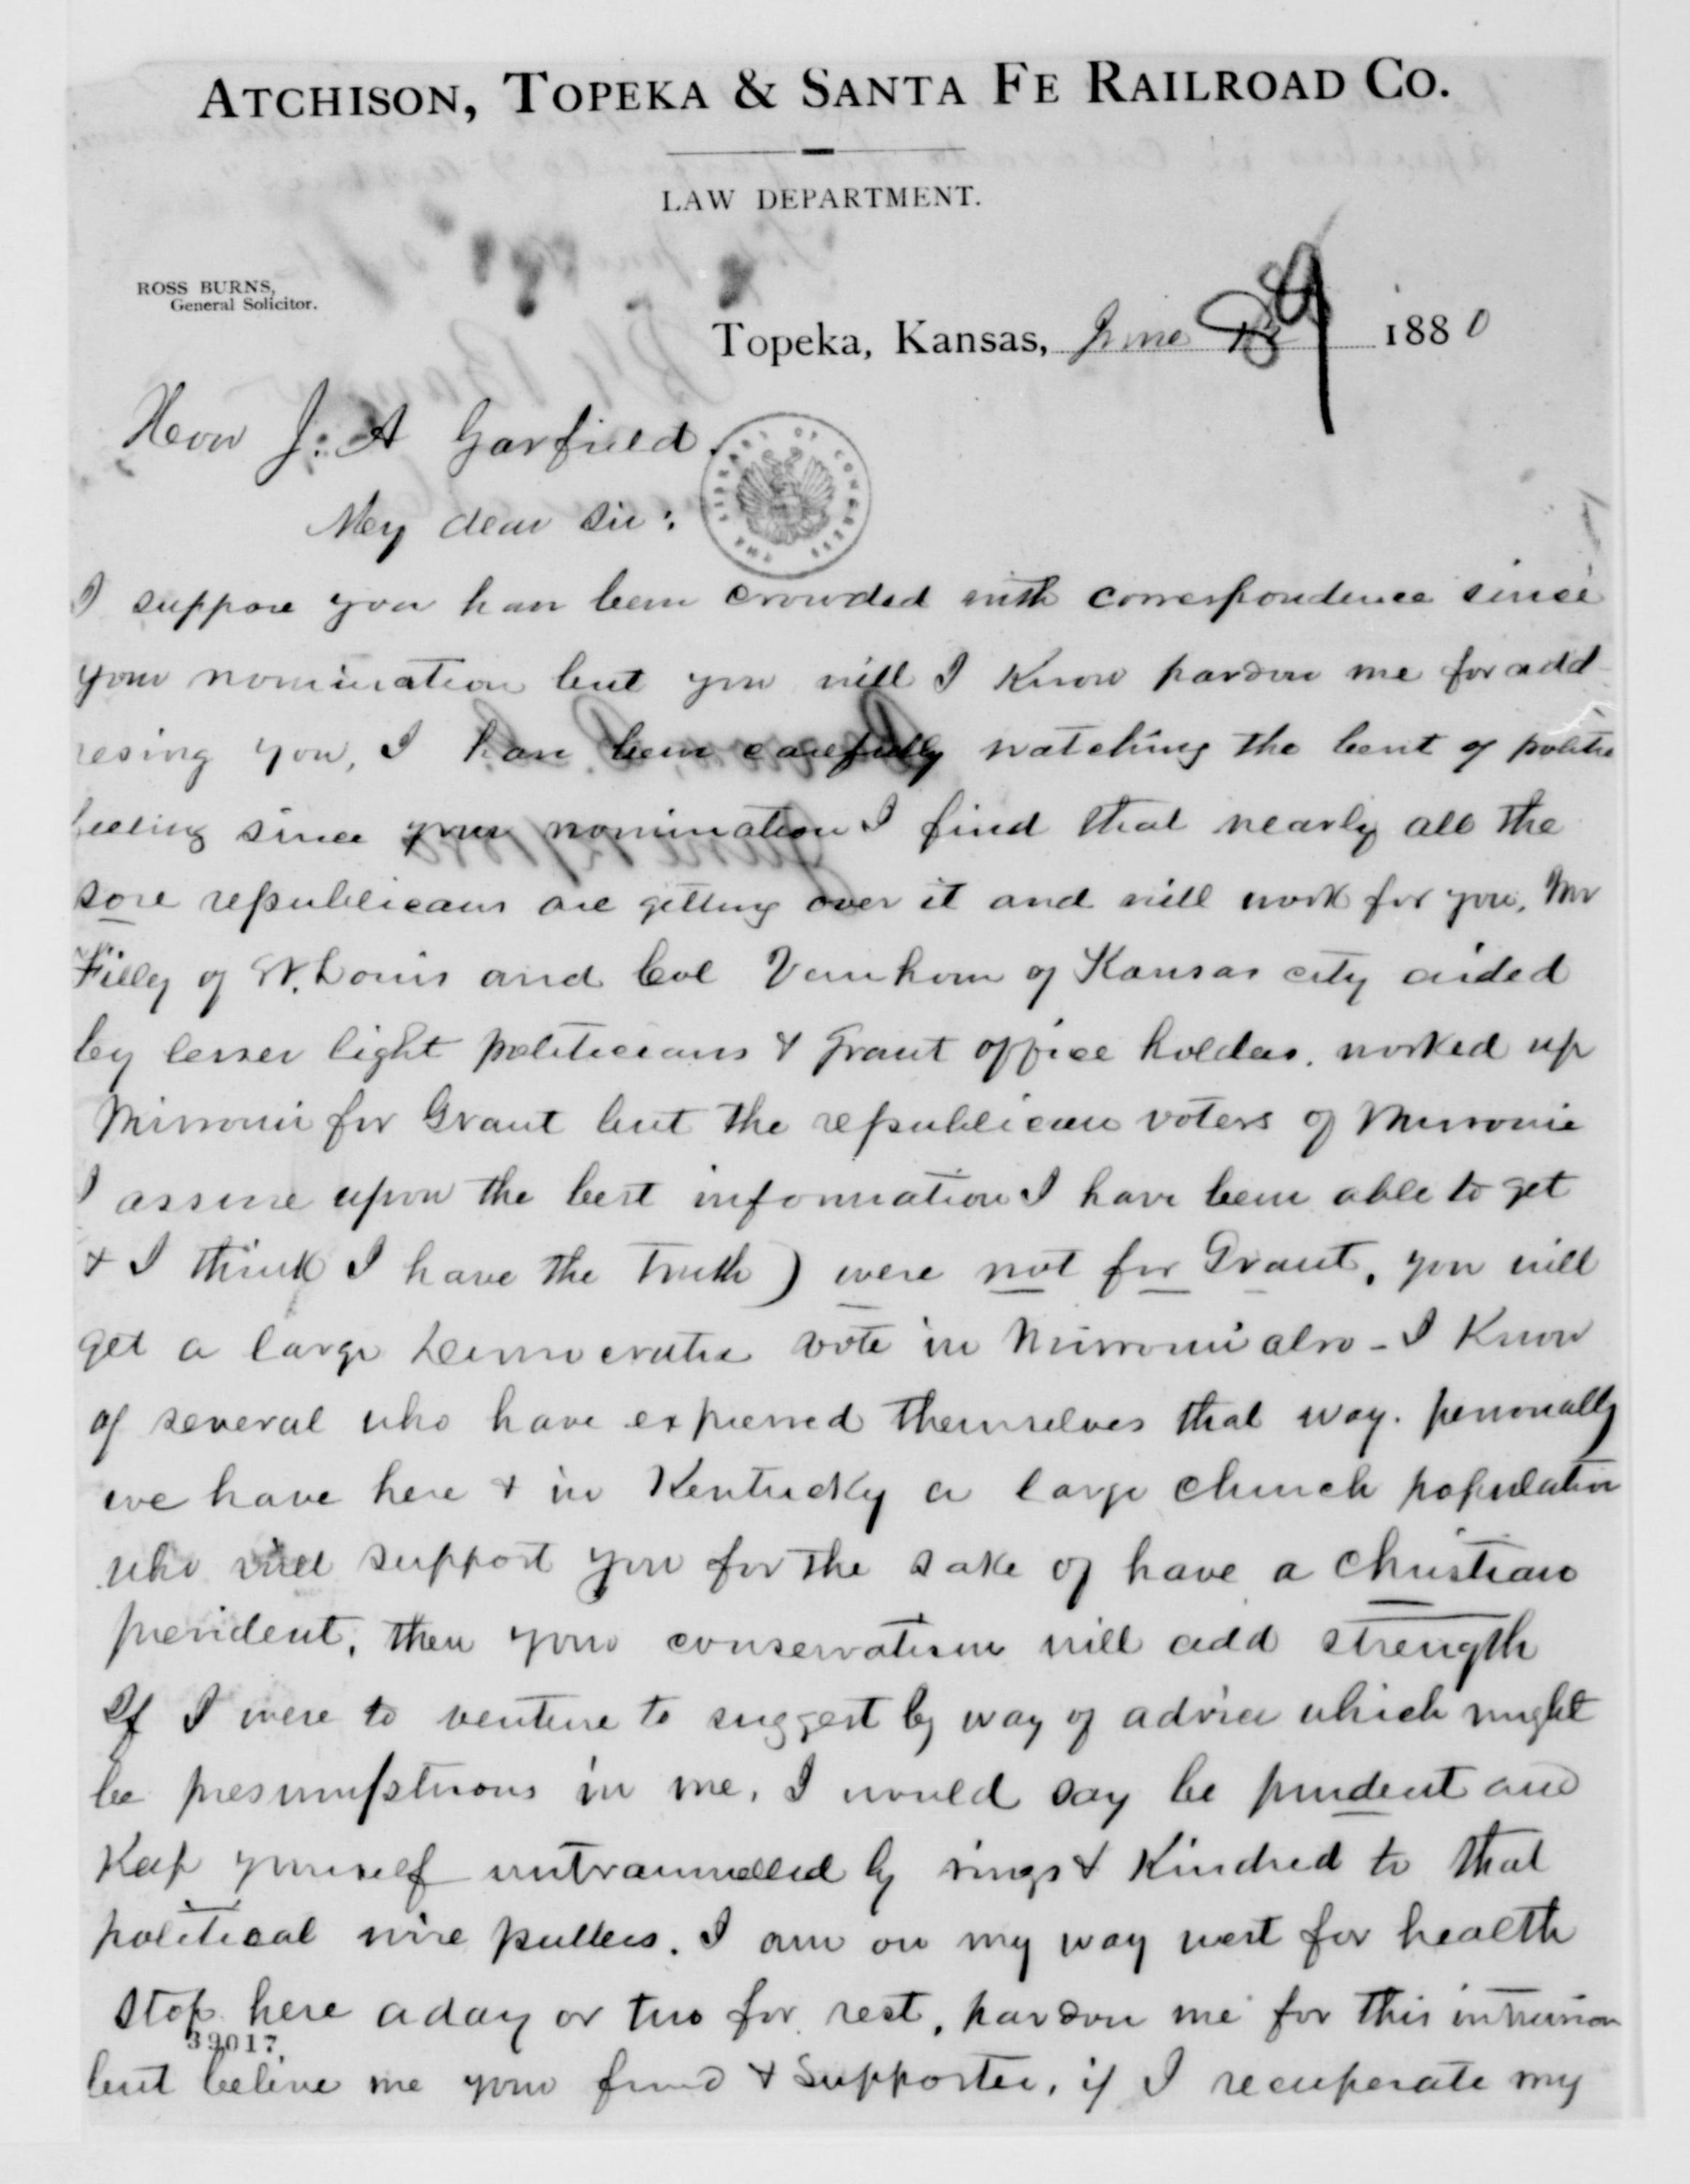 ATCHISON, TOPEKA & SANTA FE RAILROAD CO.
LAW DEPARTMENT.
ROSS BURNS,
General Solicitor.
Topeka, Kansas, June 1880
Hon J. A Garfield.
My dear Sir:
THE LIBRARY OF CONGRESS
I suppose you have been crowded with correspondence since
your nomination but you will I know pardon me for add-
resing you, I have been carefully watching the bent of politic
feeling since your nomination I find that nearly all the
sore republicans are getting over it and will work for you, Mr
Filley of St. Louis and Col Vanhorn of Kansas city aided
by lesser light politicians & Grant office holders. worked up
Missouri for Grant but the republican voters of Missouri
I assure upon the best information I have been able to get
& I think I have the truth) were not for Grant, you will
get a large Democratic vote in Missouri also - I know
of several who have expressed themselves that way. personally
we have here & in Kentucky a large church population
who will support you for the sake of have a Christian
president, then your conservatism will add strength
If I were to venture to suggest by way of advice which might
be presumpstuous in me, I would say be prudent and
Keep yourself untrammelled by rings & Kindred to that
political wire pullers. I am on my way west for health
stop here a day or two for rest, pardon me for this intrusion
39017.
but belive me your friend & supporter, if I recuperate my